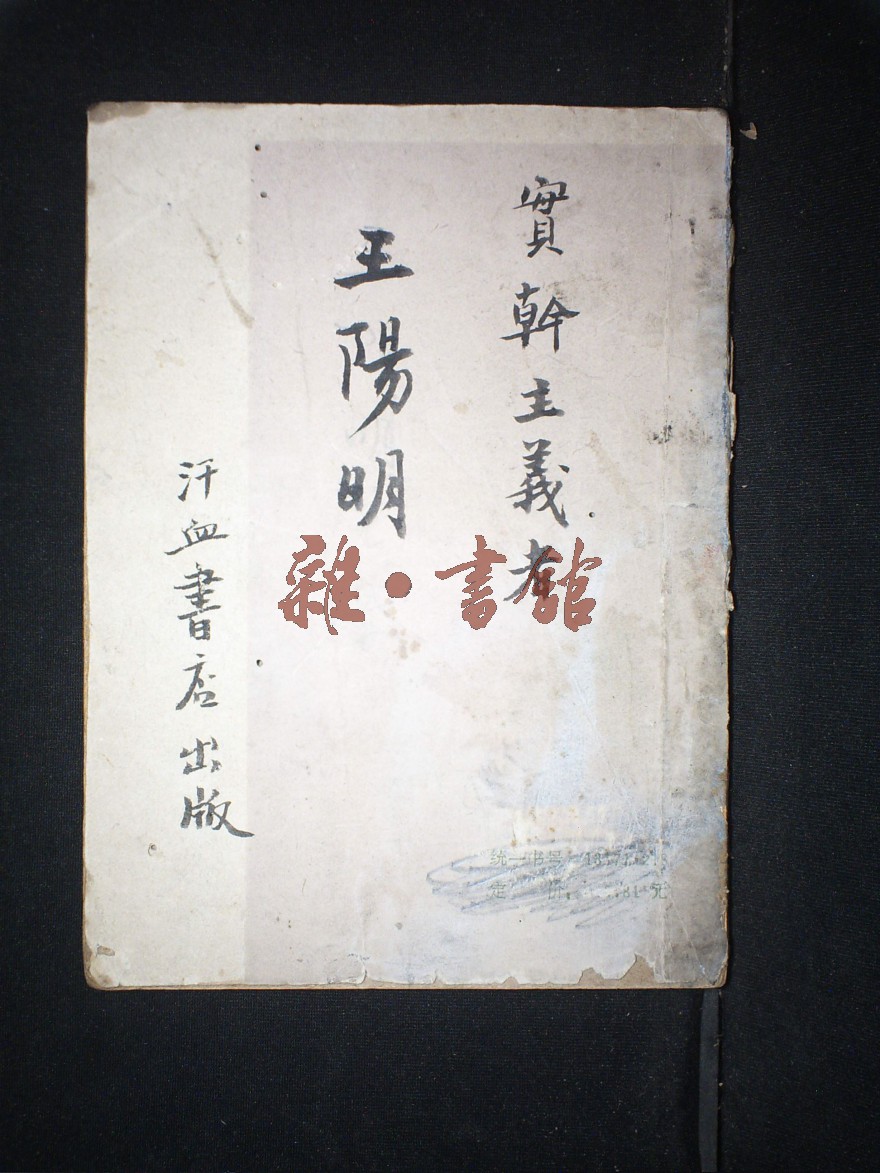 實幹主義者
王陽明
汗血書店出版
雜·書館
统一书号
定 价
元